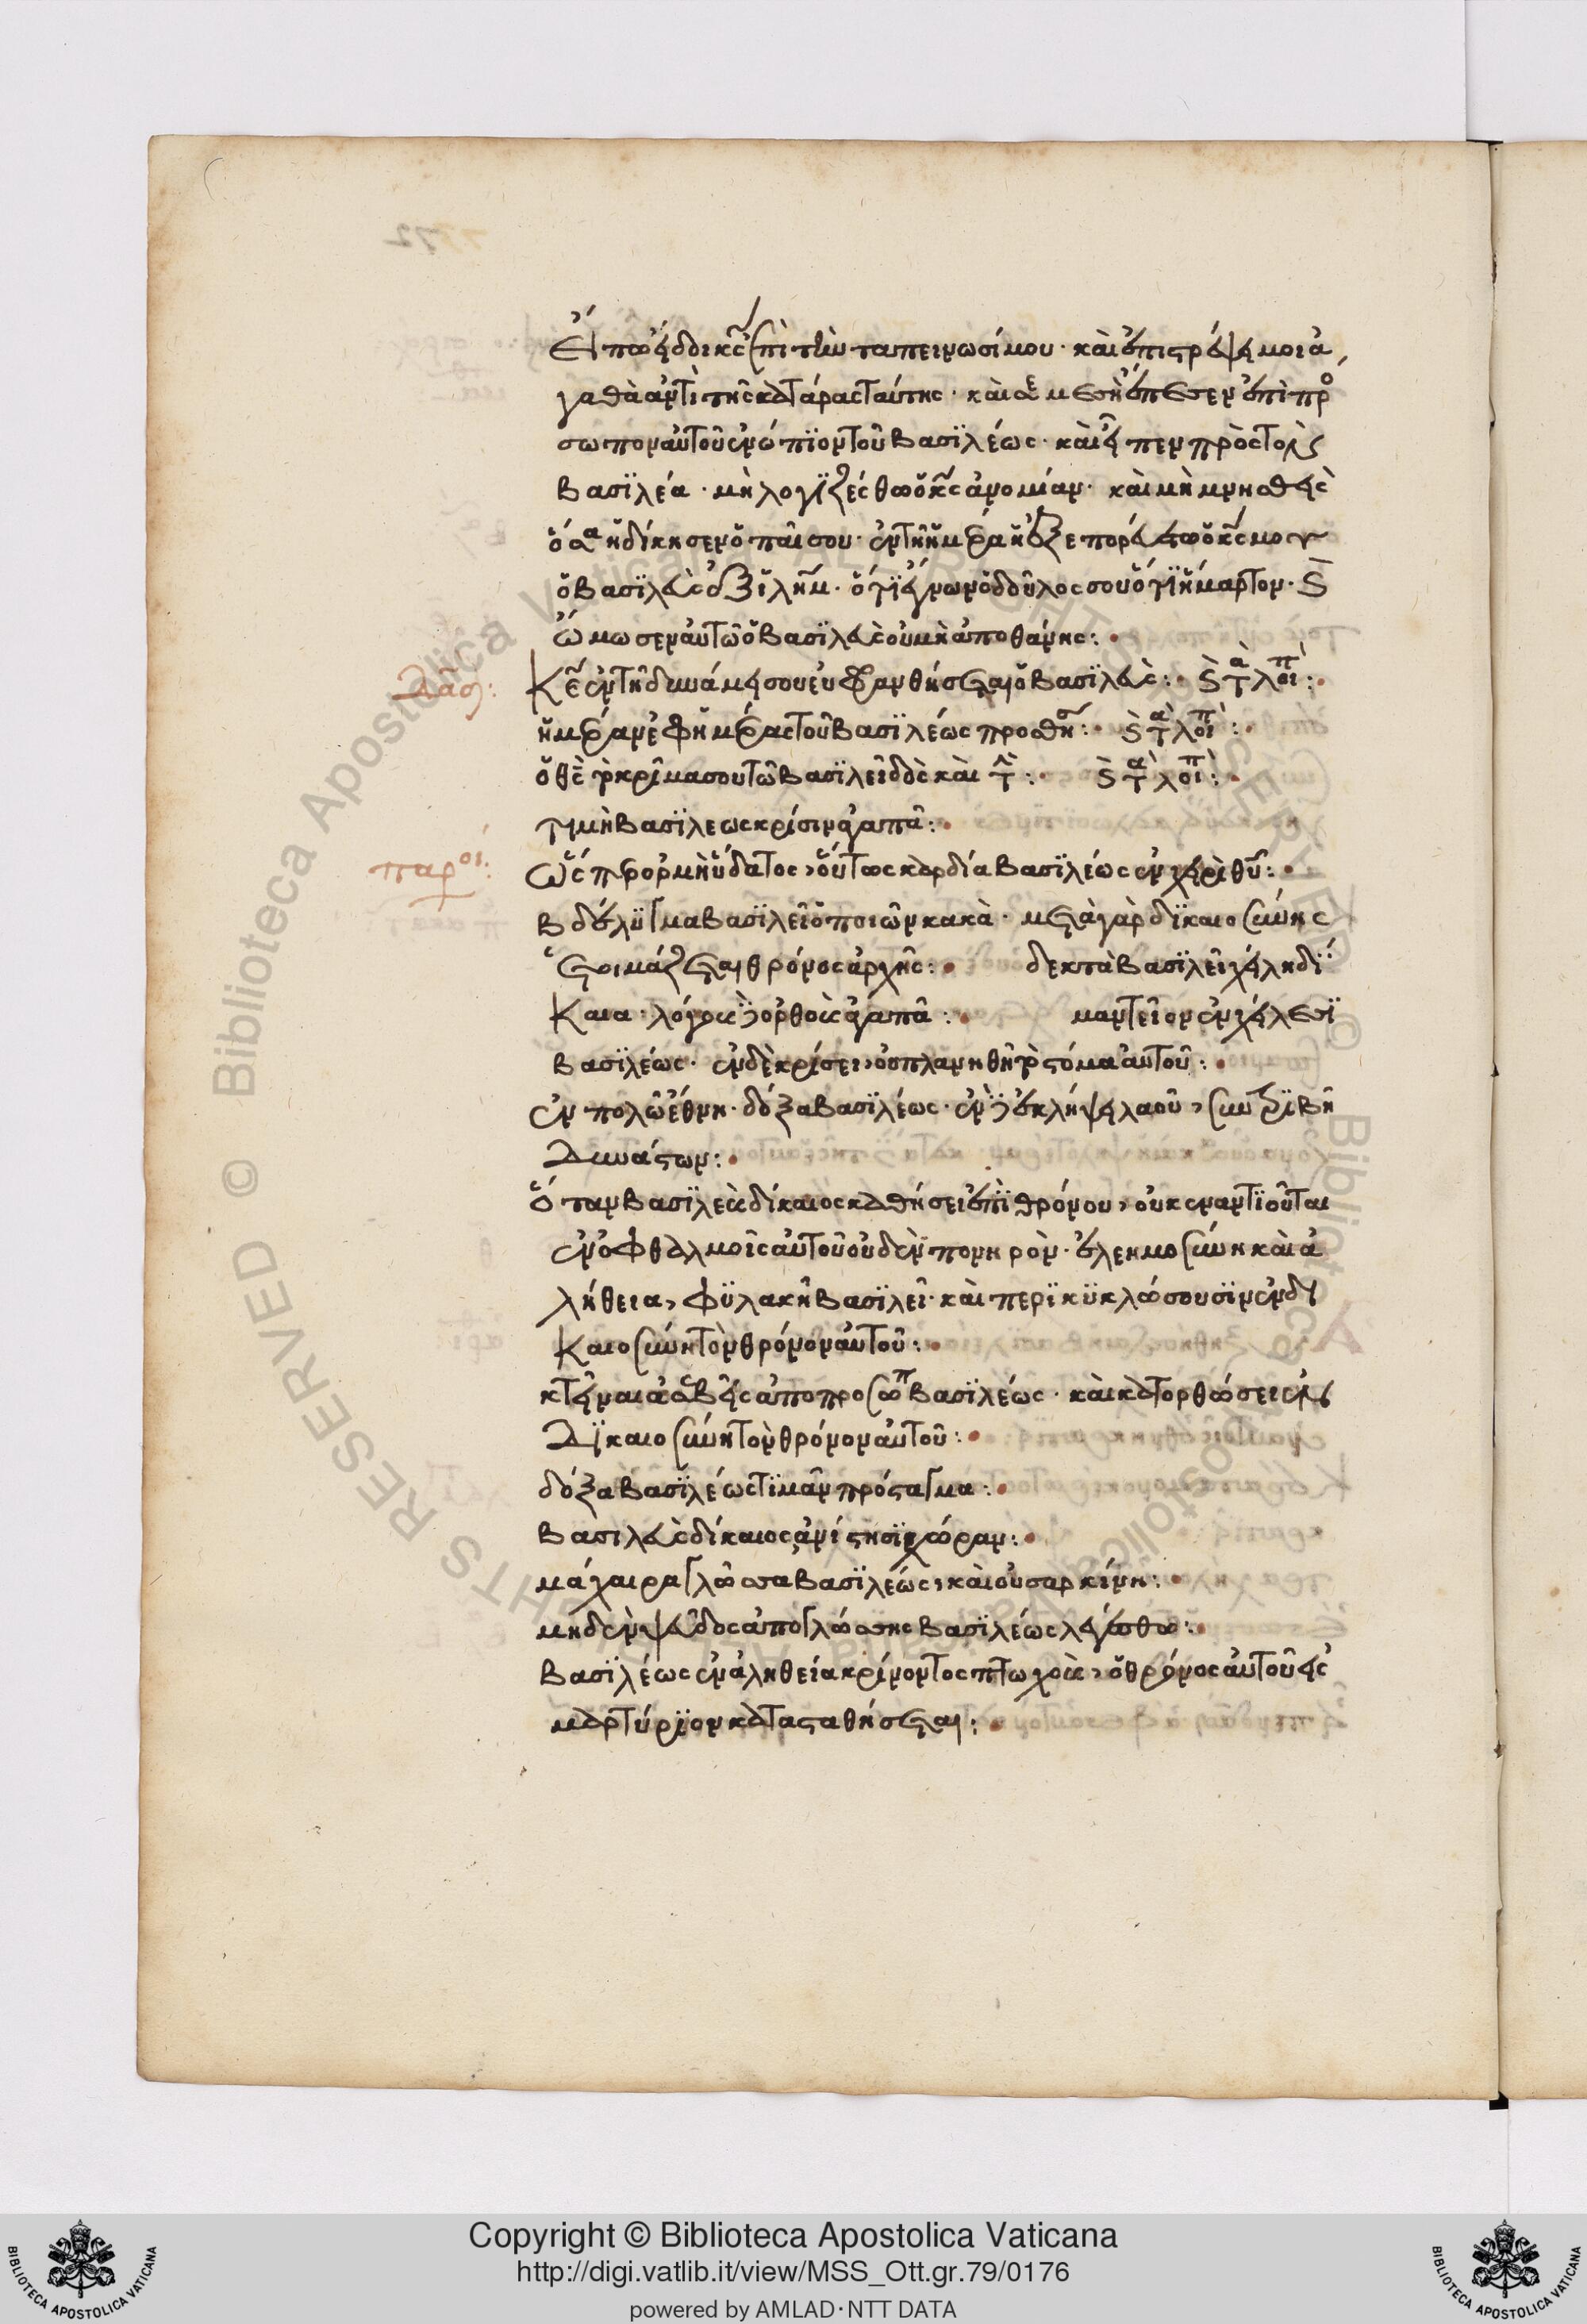 Εἴπως ἴδοι κς ἐπὶ τὴν ταπεινωσί μου · καὶ ἐπιστρέψει μοι ἀ
γαθὰ ἀντὶ τῆς κατάρας ταύτης · καὶ σεμεεὴ ἔπεσεν ἐπὶ πρό
σωπον αὐτοῦ ἐνώπϊον τοῦ βασϊλέως · καὶ εἶπεν πρὸς τὸν
βασϊλέα · μὴ λογϊζέσθω ὁ κς ἀνομίαν · καὶ μὴ μνησθεὶς
ὅσα ἠδίκησεν ὁ παῖς σου · ἐν τῆ ἡμέρα ἧ ἐξεπορεύετω ὁ κς μου
ὁ βασϊλεὺς ἐξ ϊλημ · ὅτϊ ἔγνων ὁ δοῦλος σου ὅτϊ ἥμαρτον · καὶ
ὤμωσεν αὐτῶ ὁ βασϊλεὺς οὐ μὴ ἀποθάνης :
Δαδ : Κε ἐν τῆ δυνάμει σου εὐφρανθήσεται ὁ βασϊλεὺς : καὶ τὰ λοιπ :
ἡμέραν ἐφ ἡμέρας τοῦ βασϊλέως προσθη : καὶ τὰ λοιπ :
ὁ θς τὸ κρῖμα σου τῶ βασϊλεῖ δὸς καὶ τὰ : καὶ τὰ λοιπ :
τιμὴ βασϊλεως κρίσιν ἀγαπᾶ :
παροι : Ὥσπερ ὁρμὴ ὕδατος, οὕτως καρδία βασϊλέως ἐν χειρὶ θυ :
βδέλυγμα βασϊλεῖ ὁ ποιῶν κακὰ · μετὰ γὰρ δϊκαιοσύνης
ἑτοιμάζεται θρόνος ἀρχῆς : δεκτὰ βασϊλεῖ χείλη δϊ
καια · λόγους δὲ ὀρθοὺς ἀγαπᾶ : μαντεῖον ἐν χείλεσϊ
βασϊλέως · ἐν δὲ κρίσει, οὐ πλανηθῆ τὸ στόμα αὐτοῦ :
ἐν πολῶ ἔθνη · δόξα βασϊλέως · ἐν δὲ ἐκλήψει λαοῦ, συντρϊβὴ
δυνάστων :
ὅταν βασϊλεὺς δίκαιος καθήσει ἐπὶ θρόνου, οὐκ ἐναντϊοῦται
ἐν ὀφθαλμοῖς αὐτοῦ οὐδὲν πονηρὸν · ἐλεημοσύνη καὶ ἀ
λήθεια, φϋλακὴ βασϊλεῖ · καὶ περϊκϋκλώσουσϊν ἐν δι
καιοσύνη τὸν θρόνον αὐτοῦ :
κτεῖναι ἀσεβεῖς ἀπο προσωπ βασϊλέως · καὶ κατορθώσει ἐν
δϊκαιοσύνη τὸν θρόνον αὐτοῦ :
δόξα βασϊλέως τϊμᾶν πρόσταγμα :
βασιλεὺς δίκαιος ἀνίστησϊ χώραν :
μάχαιρα γλῶσσα βασϊλέως, καὶ οὐ σαρκίνη :
μηδὲν ψεῦδος ἀπο γλώσσης βασϊλέως λεγέσθω :
βασϊλέως ἐν ἀληθεία κρίνοντος πτωχοὺς, ὁ θρόνος αὐτοῦ εἰς
μαρτύρϊον κατασταθήσεται :
Copyright © Biblioteca Apostolica Vaticana
http://digi.vatlib.it/view/MSS_Ott.gr.79/0176
powered by AMLAD · NTT DATA